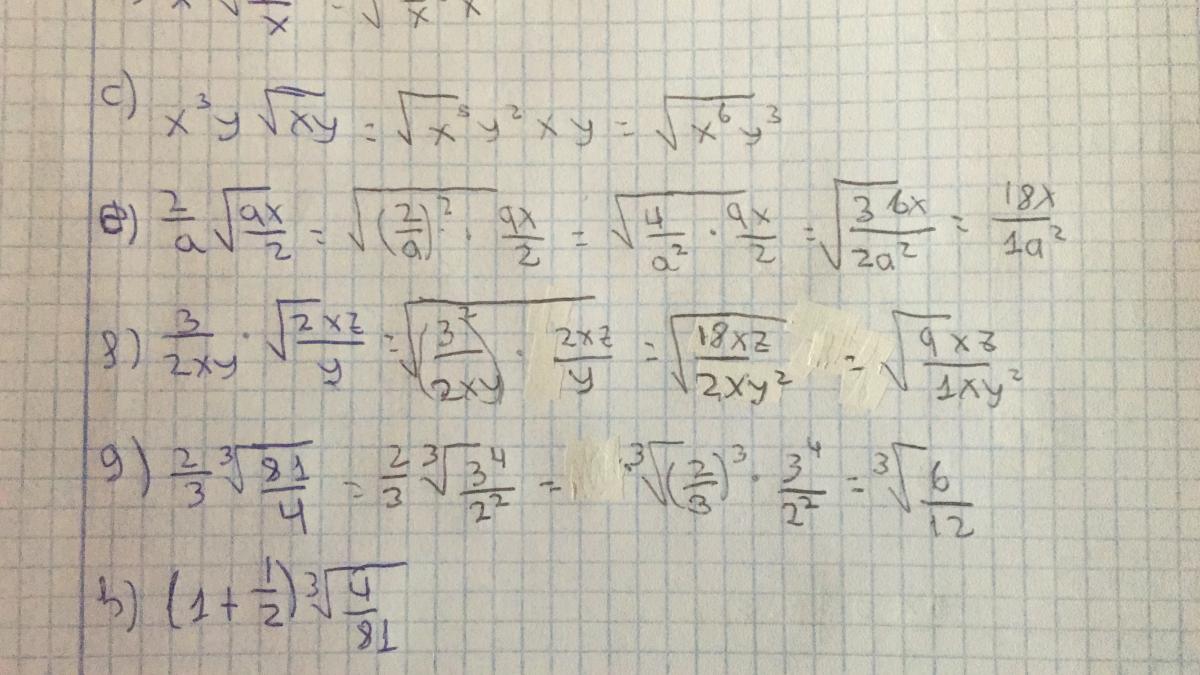 c) x³y √xy = √x⁵y²xy = √x⁶y³
e) 2/a √9x/2 = √(2/a)² · 9x/2 = √4/a² · 9x/2 = √36x/2a² = 18x/1a²
8) 3/2xy · √2xz/y = √(3²/2xy) · 2xz/y = √18xz/2xy² = √9xz/1xy²
9) 2/3 ³√81/4 = 2/3 ³√3⁴/2² = ³√(2/3)³ · 3⁴/2² = ³√6/12
h) (1 + 1/2) ³√4/81